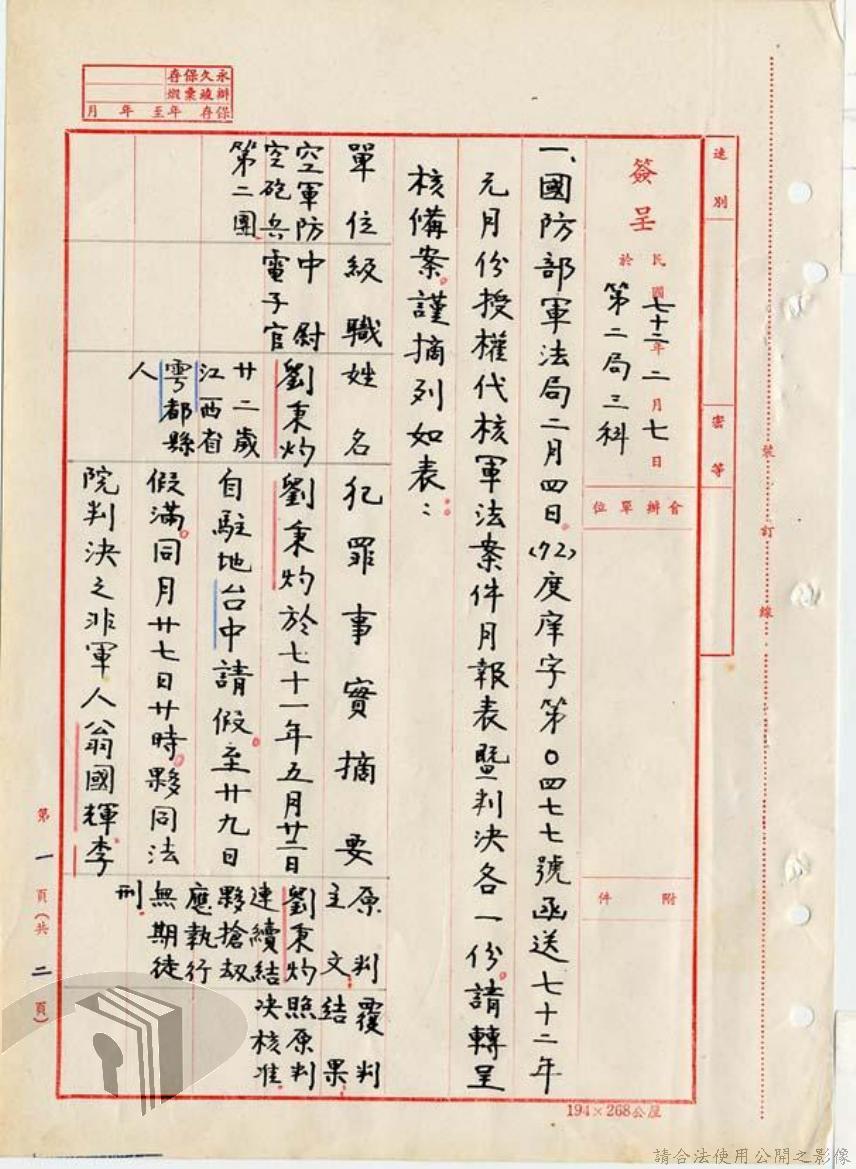 永久保存
辦竣彙燬
保存 年至 年 月
速別
密等
簽呈 民國七十二年二月七日
於 第二局三科
會辦單位
附件
一、國防部軍法局二月四日。(72)度庠字第0四七七號函送七十二年
元月份授權代核軍法案件月報表暨判決各一份。請轉呈
核備案。謹摘列如表:
單位 級職 姓名 犯罪事實摘要 原判主文 覆判結果
空軍防空砲兵第二團
中尉電子官
劉秉灼
廿二歲
江西省
雩都縣
人
劉秉灼於七十一年五月廿二日
自駐地台中請假。至廿九日
假滿。同月廿七日廿時。夥同法
院判決之非軍人翁國輝.李
劉秉灼
連續結
夥搶劫
應執行
無期徒
刑.
照原判
決核准.
第一頁(共二頁)
裝訂線
194×268公厘
請合法使用公開之影像